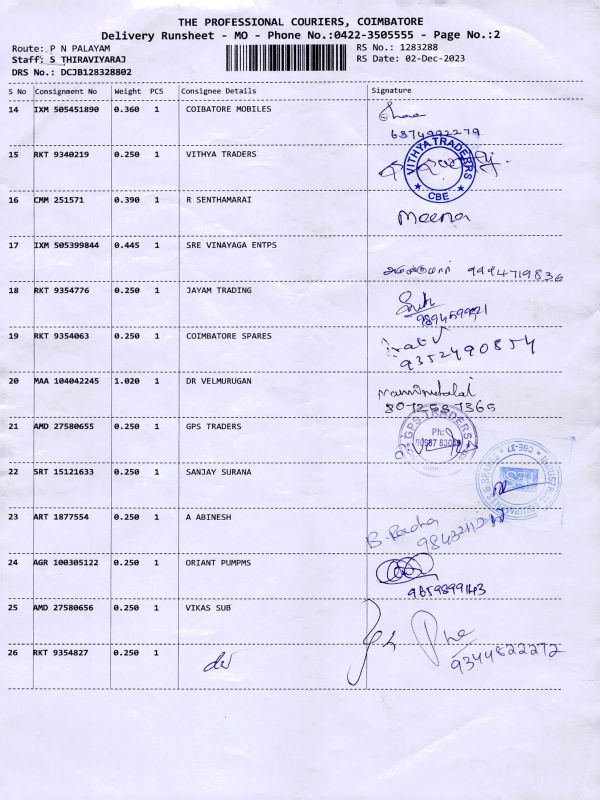 THE PROFESSIONAL COURIERS, COIMBATORE
Delivery Runsheet - MO - Phone No.:0422-3505555 - Page No.:2
Route: P N PALAYAM
RS No.: 1283288
Staff: S THIRAVIYARAJ
RS Date: 02-Dec-2023
DRS No.: DCJB128328802
S No Consignment No Weight PCS Consignee Details Signature
14 IXM 505451890 0.360 1 COIBATORE MOBILES
6374992279
15 RKT 9340219 0.250 1 VITHYA TRADERS
VITHYA TRADERRS
CBE
16 CMM 251571 0.390 1 R SENTHAMARAI
Meena
17 IXM 505399844 0.445 1 SRE VINAYAGA ENTPS
9994719836
18 RKT 9354776 0.250 1 JAYAM TRADING
19 RKT 9354063 0.250 1 COIMBATORE SPARES
9352490854
20 MAA 104042245 1.020 1 DR VELMURUGAN
21 AMD 27580655 0.250 1 GPS TRADERS
GPS TRADERS
Ph:
22 SRT 15121633 0.250 1 SANJAY SURANA
CBE-37
23 ART 1877554 0.250 1 A ABINESH
B. Radha
24 AGR 100305122 0.250 1 ORIANT PUMPMS
9659899143
25 AMD 27580656 0.250 1 VIKAS SUB
26 RKT 9354827 0.250 1
9344822272